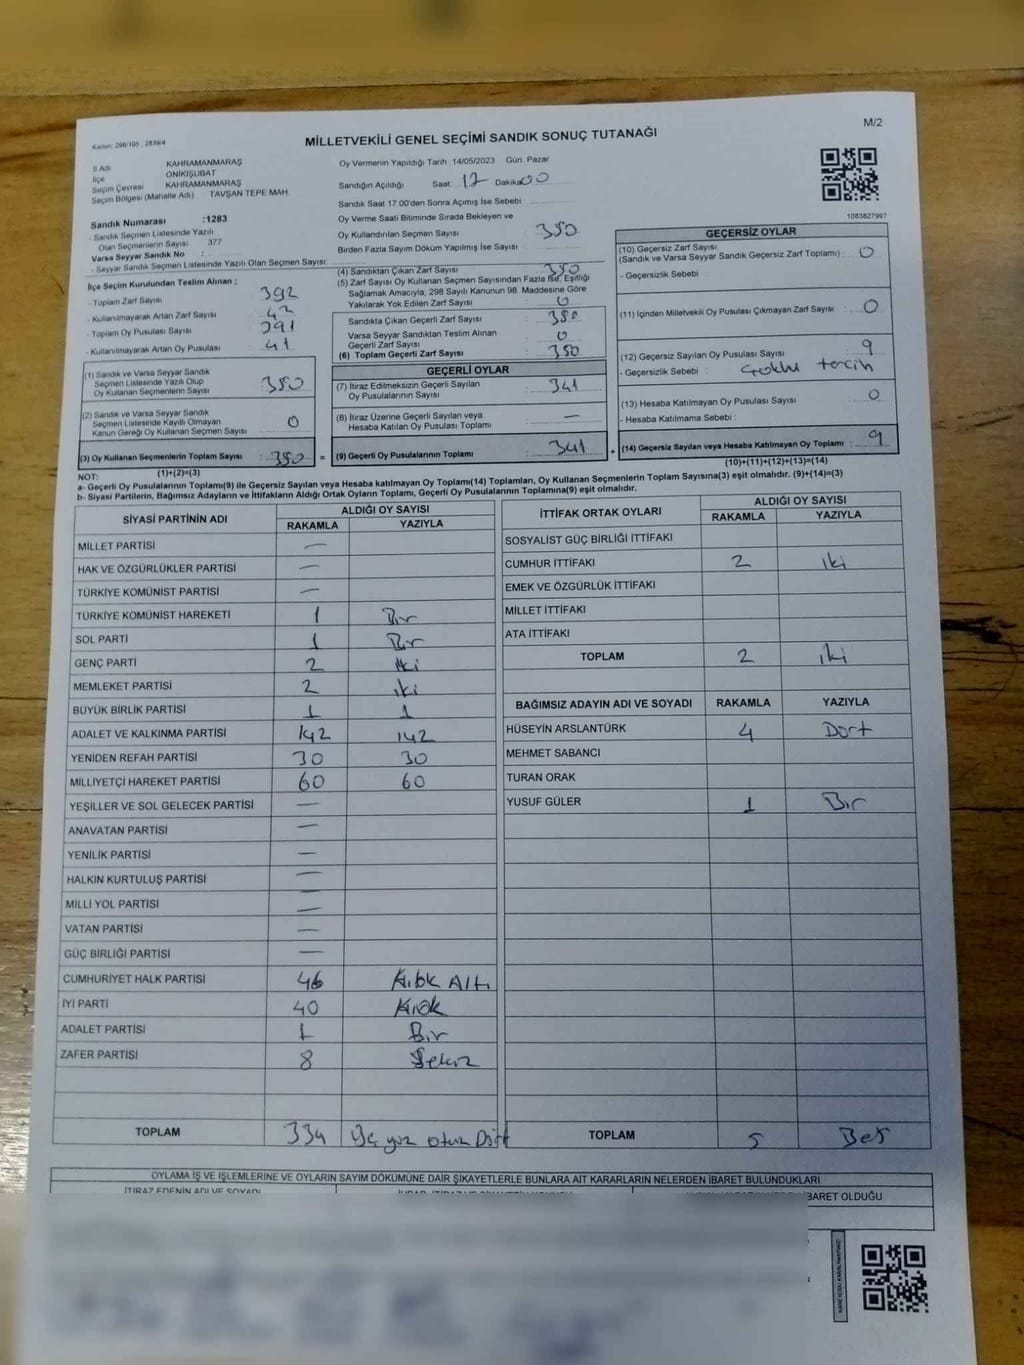 Kanun: 298/105 , 2839/4
MİLLETVEKİLİ GENEL SEÇİMİ SANDIK SONUÇ TUTANAĞI
M/2
İl Adı KAHRAMANMARAŞ
İlçe ONİKİŞUBAT
Seçim Çevresi KAHRAMANMARAŞ
Seçim Bölgesi (Mahalle Adı) TAVŞAN TEPE MAH.
Sandık Numarası :1283
- Sandık Seçmen Listesinde Yazılı
Olan Seçmenlerin Sayısı 377
Varsa Seyyar Sandık No :
- Seyyar Sandık Seçmen Listesinde Yazılı Olan Seçmen Sayısı:
İlçe Seçim Kurulundan Teslim Alınan ;
- Toplam Zarf Sayısı 392
- Kullanılmayarak Artan Zarf Sayısı 42
- Toplam Oy Pusulası Sayısı 391
- Kullanılmayarak Artan Oy Pusulası 41
(1) Sandık ve Varsa Seyyar Sandık
Seçmen Listesinde Yazılı Olup
Oy Kullanan Seçmenlerin Sayısı 350
(2) Sandık ve Varsa Seyyar Sandık
Seçmen Listesinde Kayıtlı Olmayan
Kanun Gereği Oy Kullanan Seçmen Sayısı 0
(3) Oy Kullanan Seçmenlerin Toplam Sayısı : 350 =
(1)+(2)=(3)
Oy Vermenin Yapıldığı Tarih 14/05/2023 Gün Pazar
Sandığın Açıldığı Saat: 17 Dakika: 00
Sandık Saat 17.00'den Sonra Açımış İse Sebebi
Oy Verme Saati Bitiminde Sırada Bekleyen ve
Oy Kullandırılan Seçmen Sayısı : 350
Birden Fazla Sayım Döküm Yapılmış İse Sayısı :
(4) Sandıktan Çıkan Zarf Sayısı 350
(5) Zarf Sayısı Oy Kullanan Seçmen Sayısından Fazla İse, Eşitliği
Sağlamak Amacıyla, 298 Sayılı Kanunun 98. Maddesine Göre
Yakılarak Yok Edilen Zarf Sayısı 0
Sandıkta Çıkan Geçerli Zarf Sayısı : 350
Varsa Seyyar Sandıktan Teslim Alınan
Geçerli Zarf Sayısı 0
(6) Toplam Geçerli Zarf Sayısı : 350
GEÇERLİ OYLAR
(7) İtiraz Edilmeksizin Geçerli Sayılan
Oy Pusulalarının Sayısı : 341
(8) İtiraz Üzerine Geçerli Sayılan veya
Hesaba Katılan Oy Pusulası Toplamı : —
(9) Geçerli Oy Pusulalarının Toplamı : 341 +
1083827997
GEÇERSİZ OYLAR
(10) Geçersiz Zarf Sayısı
(Sandık ve Varsa Seyyar Sandık Geçersiz Zarf Toplamı) : 0
- Geçersizlik Sebebi
(11) İçinden Milletvekili Oy Pusulası Çıkmayan Zarf Sayısı : 0
(12) Geçersiz Sayılan Oy Pusulası Sayısı : 9
- Geçersizlik Sebebi : Çoklu tercih
(13) Hesaba Katılmayan Oy Pusulası Sayısı : 0
- Hesaba Katılmama Sebebi :
(14) Geçersiz Sayılan veya Hesaba Katılmayan Oy Toplamı : 9
(10)+(11)+(12)+(13)=(14)
NOT:
a- Geçerli Oy Pusulalarının Toplamı(9) ile Geçersiz Sayılan veya Hesaba katılmayan Oy Toplamı(14) Toplamları, Oy Kullanan Seçmenlerin Toplam Sayısına(3) eşit olmalıdır. (9)+(14)=(3)
b- Siyasi Partilerin, Bağımsız Adayların ve İttifakların Aldığı Ortak Oyların Toplamı, Geçerli Oy Pusulalarının Toplamına(9) eşit olmalıdır.
SİYASİ PARTİNİN ADI ALDIĞI OY SAYISI
RAKAMLA YAZIYLA
MİLLET PARTİSİ —
HAK VE ÖZGÜRLÜKLER PARTİSİ —
TÜRKİYE KOMÜNİST PARTİSİ —
TÜRKİYE KOMÜNİST HAREKETİ 1 Bir
SOL PARTİ 1 Bir
GENÇ PARTİ 2 İki
MEMLEKET PARTİSİ 2 iki
BÜYÜK BİRLİK PARTİSİ 1 1
ADALET VE KALKINMA PARTİSİ 142 142
YENİDEN REFAH PARTİSİ 30 30
MİLLİYETÇİ HAREKET PARTİSİ 60 60
YEŞİLLER VE SOL GELECEK PARTİSİ —
ANAVATAN PARTİSİ —
YENİLİK PARTİSİ —
HALKIN KURTULUŞ PARTİSİ —
MİLLİ YOL PARTİSİ —
VATAN PARTİSİ —
GÜÇ BİRLİĞİ PARTİSİ —
CUMHURİYET HALK PARTİSİ 46 Kırk Altı
İYİ PARTİ 40 Kırk
ADALET PARTİSİ 1 Bir
ZAFER PARTİSİ 8 Sekiz
TOPLAM 334 Üç yüz otuz Dört
İTTİFAK ORTAK OYLARI ALDIĞI OY SAYISI
RAKAMLA YAZIYLA
SOSYALİST GÜÇ BİRLİĞİ İTTİFAKI
CUMHUR İTTİFAKI 2 iki
EMEK VE ÖZGÜRLÜK İTTİFAKI
MİLLET İTTİFAKI
ATA İTTİFAKI
TOPLAM 2 iki
BAĞIMSIZ ADAYIN ADI VE SOYADI RAKAMLA YAZIYLA
HÜSEYİN ARSLANTÜRK 4 Dört
MEHMET SABANCI
TURAN ORAK
YUSUF GÜLER 1 Bir
TOPLAM 5 Beş
OYLAMA İŞ VE İŞLEMLERİNE VE OYLARIN SAYIM DÖKÜMÜNE DAİR ŞİKAYETLERLE BUNLARA AİT KARARLARIN NELERDEN İBARET BULUNDUKLARI
İTİRAZ EDENİN ADI VE SOYADI
İBARET OLDUĞU